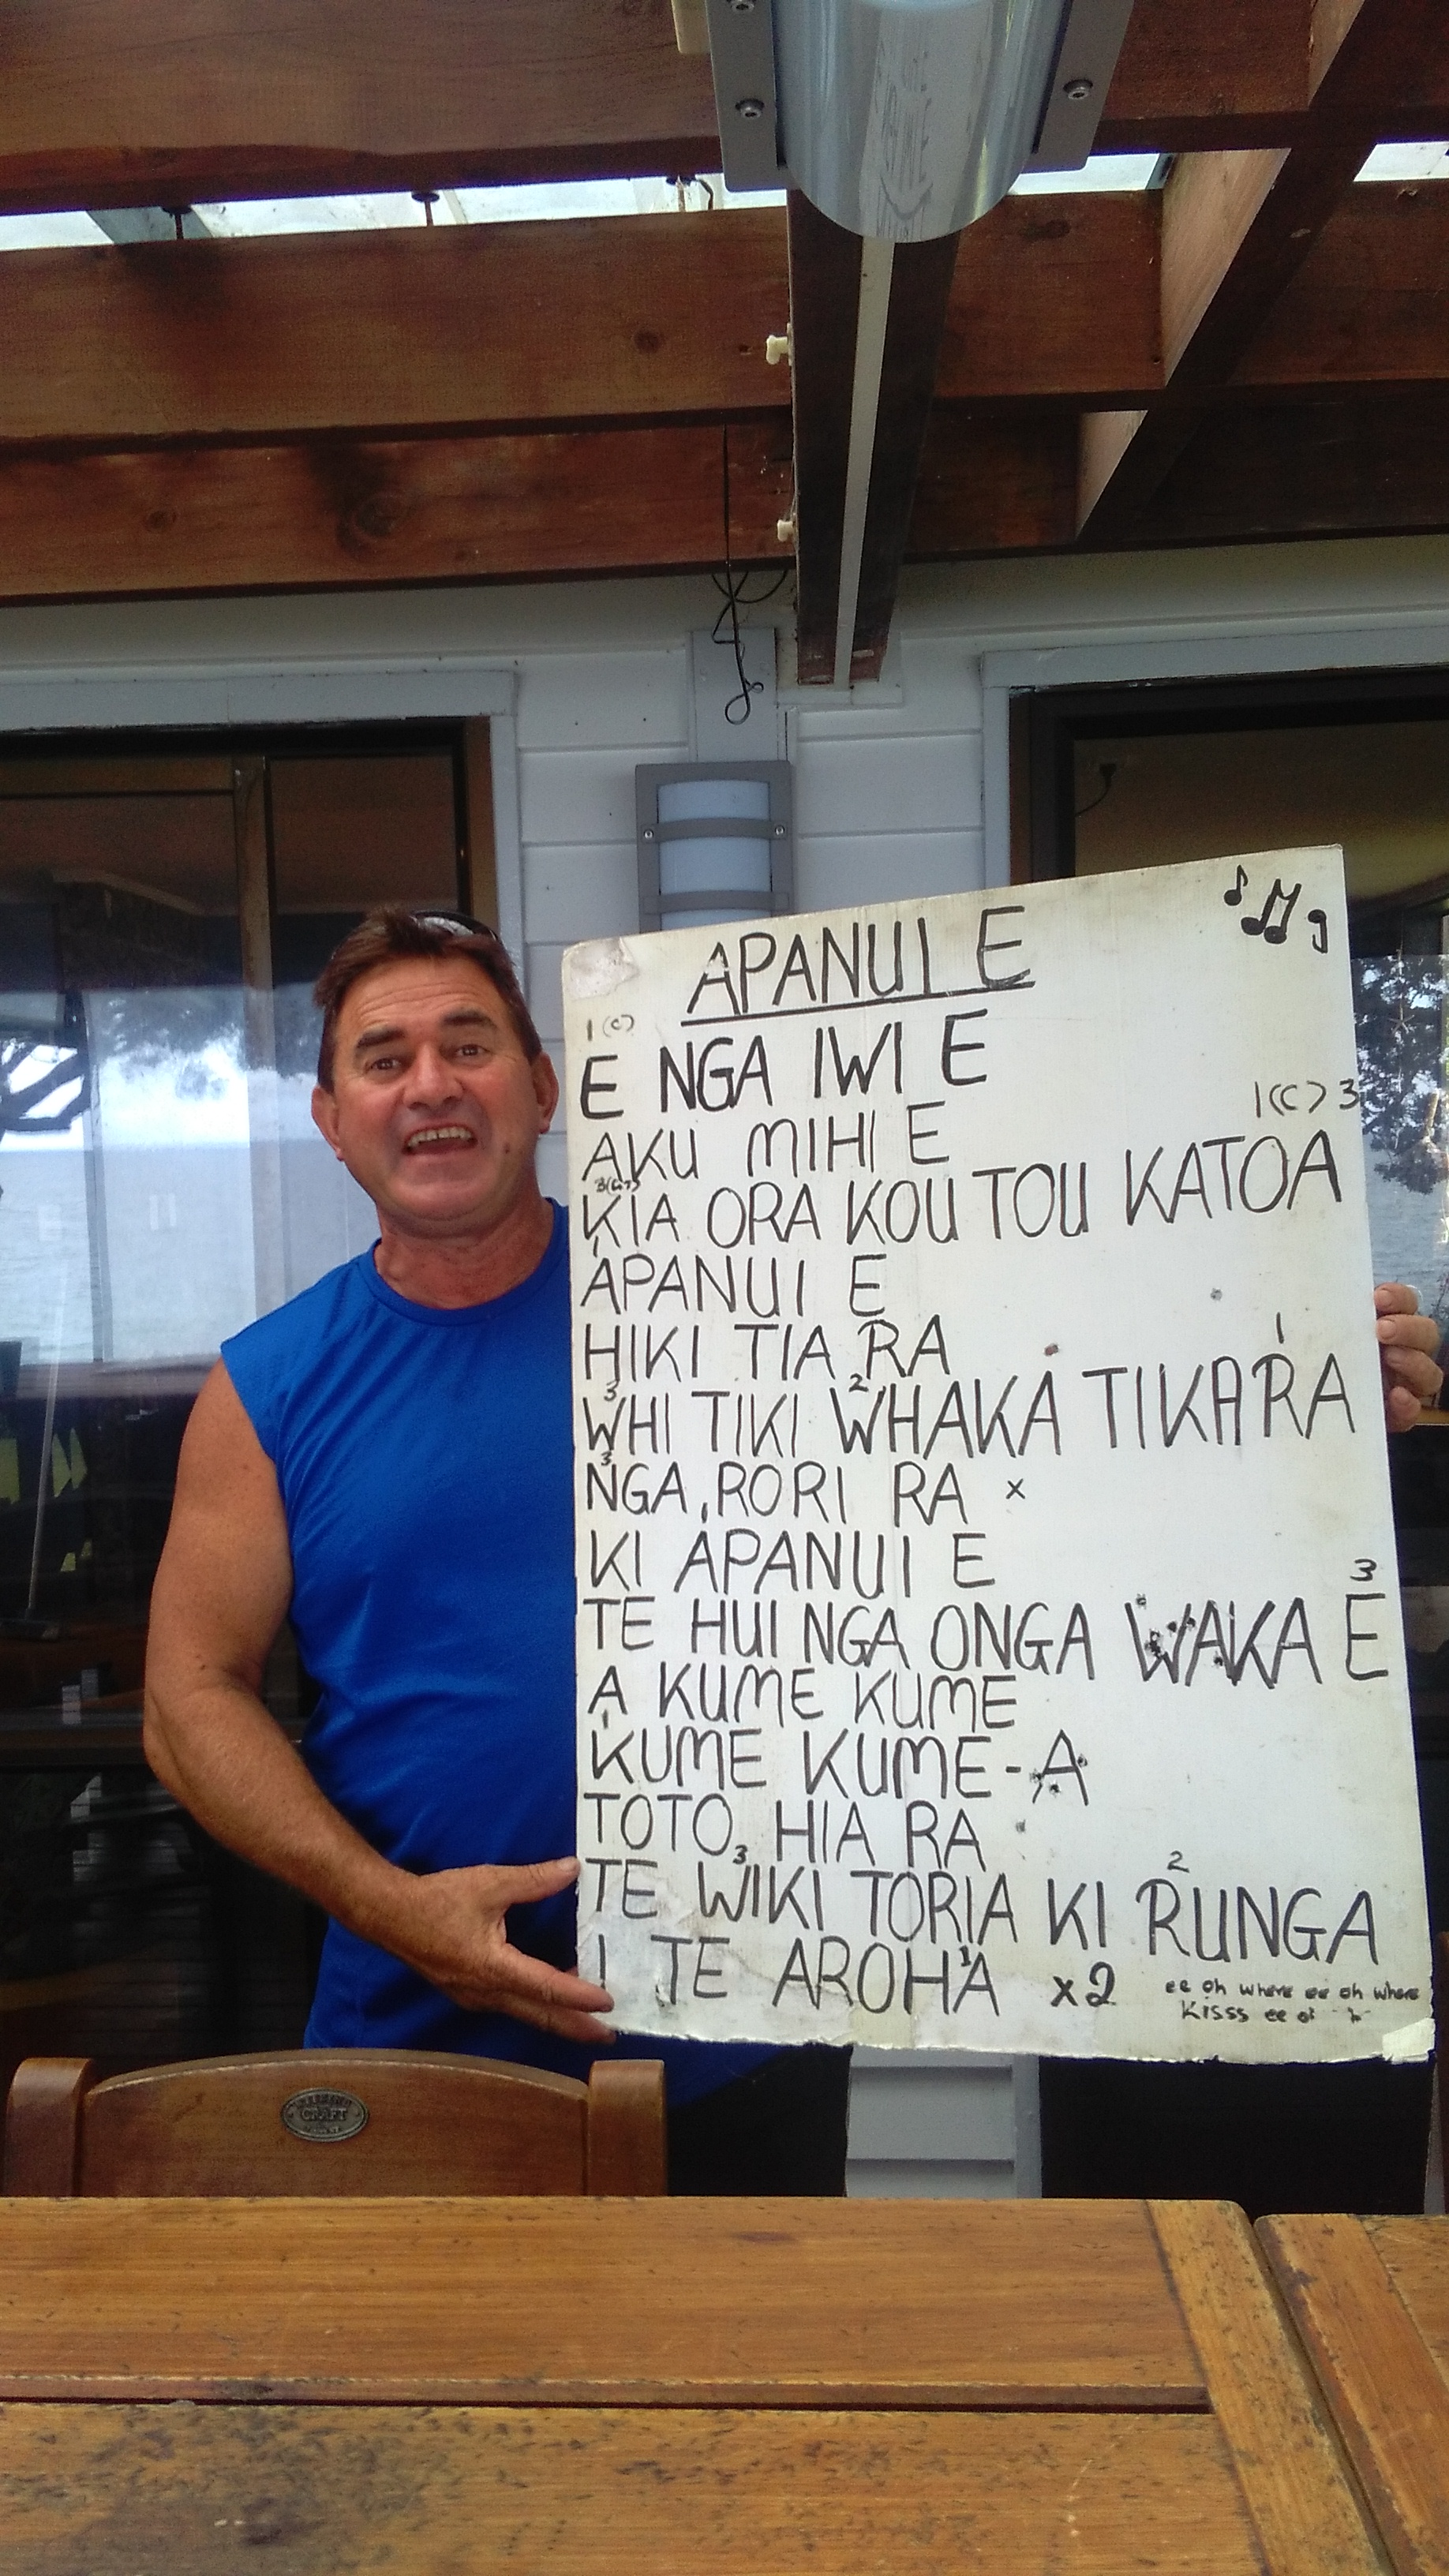 APANUI E
1 (C)
E NGA IWI E
AKU MIHI E
1 (C) 3
KIA ORA KOUTOU KATOA
1
APANUI E
HIKI TIA RA
3 2 1
WHI TIKI WHAKA TIKA RA
3
NGA RORI RA x
KI APANUI E
3
TE HUI NGA ONGA WAKA E
A KUME KUME
1
KUME KUME-A
TOTO HIA RA
3 2
TE WIKI TORIA KI RUNGA
1
I TE AROHA x2
ee oh where ee oh where
Kisss ee
CRAFT